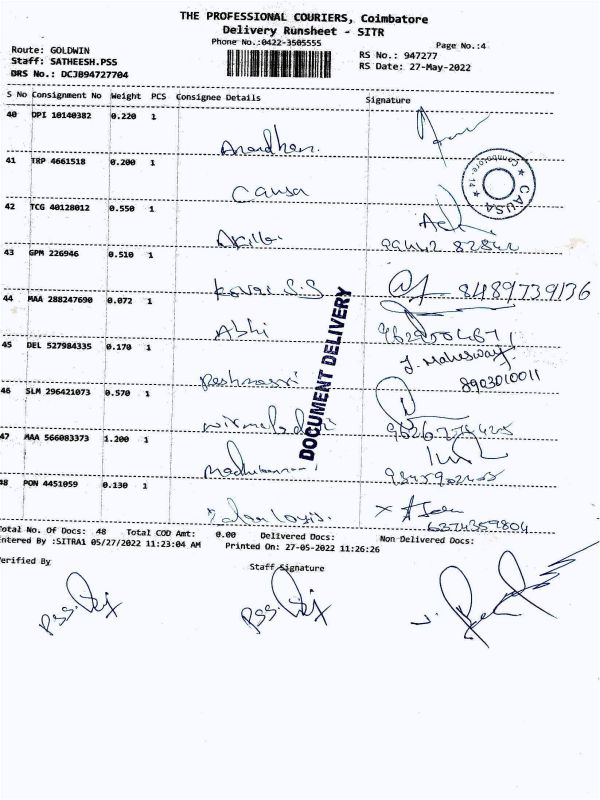 THE PROFESSIONAL COURIERS, Coimbatore
Delivery Runsheet - SITR
Phone No.:0422-3505555
Page No.:4
Route: GOLDWIN
Staff: SATHEESH.PSS
DRS No.: DCJB94727704
RS No.: 947277
RS Date: 27-May-2022
S No Consignment No Weight PCS Consignee Details Signature
40 DPI 10140382 0.220 1
Anandhan.
41 TRP 4661518 0.200 1
Causa
CAUSA Coimbatore-14
42 TCG 40128012 0.550 1
Akilbi
99442 82842
43 GPM 226946 0.510 1
Kovai S.S 8489739136
44 MAA 288247690 0.072 1
Abhi
45 DEL 527984335 0.170 1
J. Maheswari
8903010011
46 SLM 296421073 0.570 1
47 MAA 566083373 1.200 1
48 PON 4451059 0.130 1
6374359804
DOCUMENT DELIVERY
Total No. Of Docs: 48 Total COD Amt: 0.00 Delivered Docs: Non Delivered Docs:
Entered By :SITRA1 05/27/2022 11:23:04 AM Printed On: 27-05-2022 11:26:26
Verified By Staff Signature